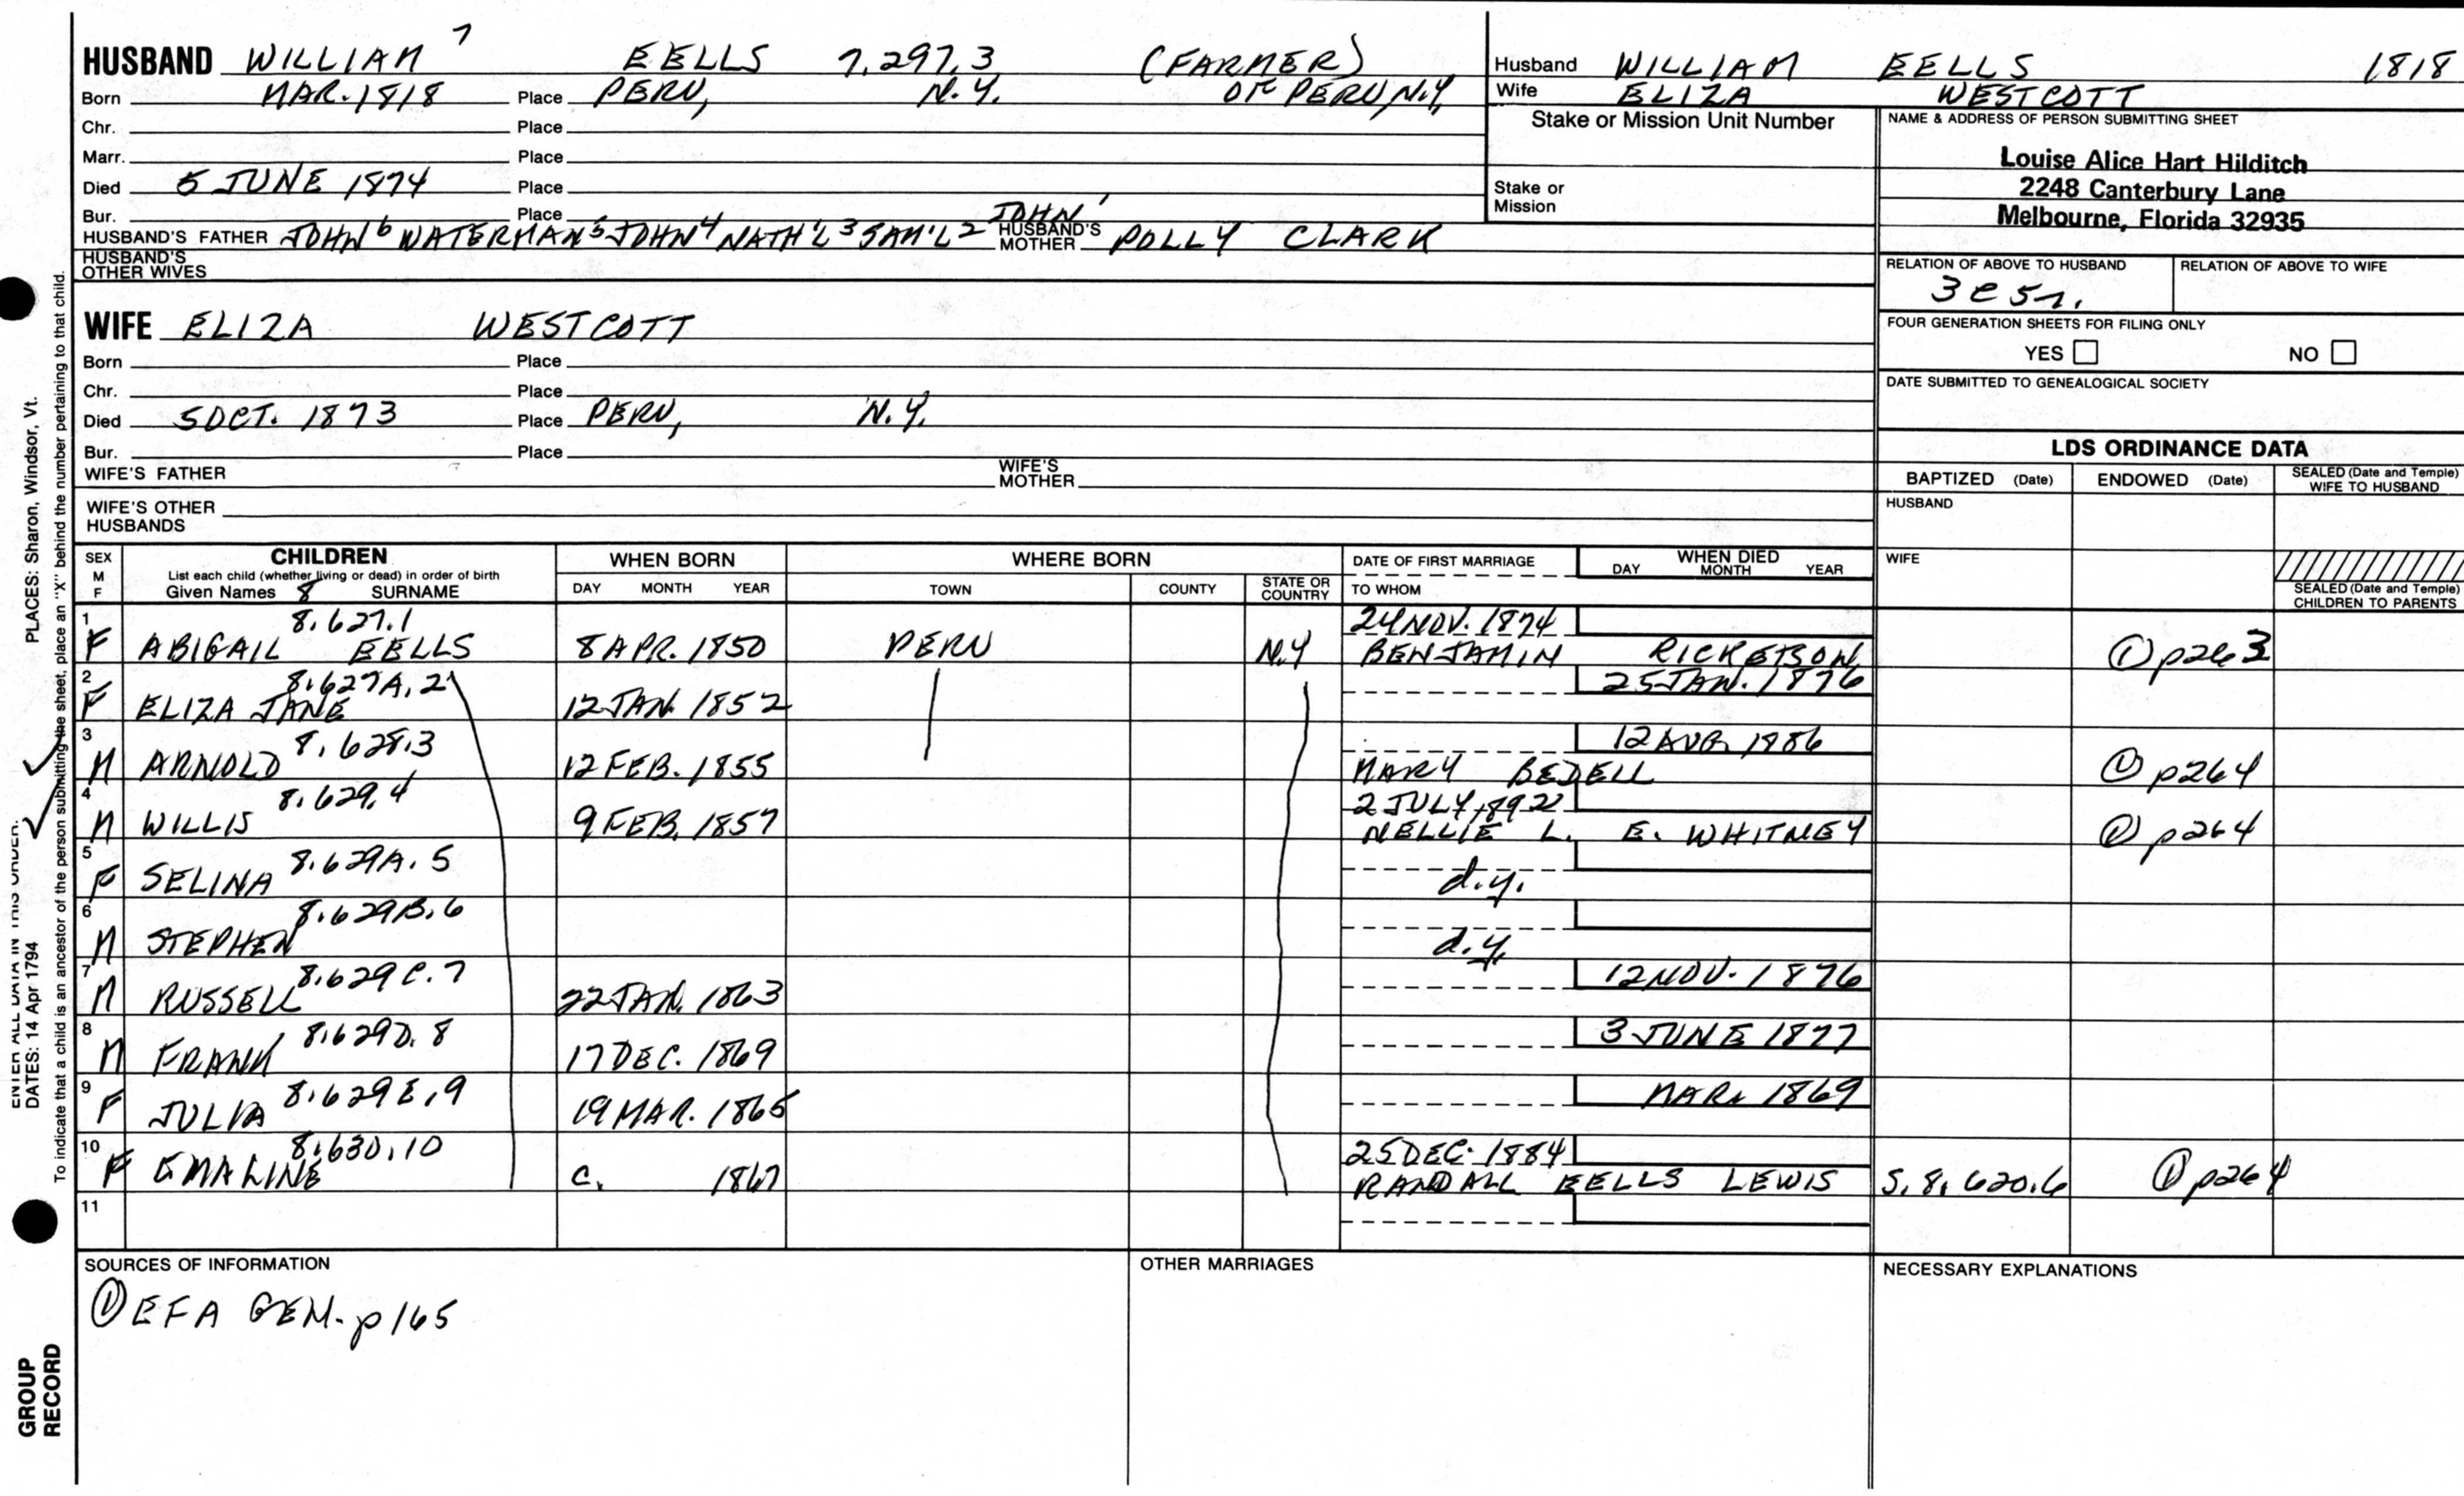 HUSBAND WILLIAM 7 EELLS 7.297.3 (FARMER)
Born MAR. 1818 Place PERU, N.Y. OF PERU, N.Y.
Chr. Place
Marr. Place
Died 5 JUNE 1874 Place
Bur. Place
HUSBAND'S FATHER JOHN 6 WATERMAN 5 JOHN 4 NATH'L 3 SAM'L 2 JOHN 1 HUSBAND'S MOTHER POLLY CLARK
HUSBAND'S OTHER WIVES
WIFE ELIZA WESTCOTT
Born Place
Chr. Place
Died 5 OCT. 1873 Place PERU, N.Y.
Bur. Place
WIFE'S FATHER WIFE'S MOTHER
WIFE'S OTHER HUSBANDS
Husband WILLIAM EELLS 1818
Wife ELIZA WESTCOTT
Stake or Mission Unit Number
Stake or Mission
NAME & ADDRESS OF PERSON SUBMITTING SHEET
Louise Alice Hart Hilditch
2248 Canterbury Lane
Melbourne, Florida 32935
RELATION OF ABOVE TO HUSBAND RELATION OF ABOVE TO WIFE
FOUR GENERATION SHEETS FOR FILING ONLY
YES NO
DATE SUBMITTED TO GENEALOGICAL SOCIETY
LDS ORDINANCE DATA
BAPTIZED (Date) ENDOWED (Date) SEALED (Date and Temple) WIFE TO HUSBAND
HUSBAND
WIFE
SEALED (Date and Temple) CHILDREN TO PARENTS
SEX M F CHILDREN WHEN BORN WHERE BORN DATE OF FIRST MARRIAGE WHEN DIED
List each child (whether living or dead) in order of birth DAY MONTH YEAR
Given Names 8 SURNAME DAY MONTH YEAR TOWN COUNTY STATE OR COUNTRY TO WHOM
1 8.627.1 24 NOV. 1874
F ABIGAIL EELLS 8 APR. 1850 PERU N.Y BENJAMIN RICKETSON ① p263
2 8.627A.2 25 JAN. 1876
F ELIZA JANE 12 JAN. 1852
3 8.628.3 12 AUG. 1886
M ARNOLD 12 FEB. 1855 MARY BEDELL ① p264
4 8.629.4 2 JULY 1892
M WILLIS 9 FEB. 1857 NELLIE L. E. WHITNEY ① p264
5 8.629A.5
F SELINA d.y.
6 8.629B.6
M STEPHEN d.y.
7 8.629C.7 12 NOV. 1876
M RUSSELL 22 JAN. 1863
8 8.629D.8 3 JUNE 1877
M FRANK 17 DEC. 1869
9 8.629E.9 MAR. 1869
F JULIA 19 MAR. 1865
10 8.630.10 25 DEC. 1884
F EMALINE c. 1867 RANDALL EELLS LEWIS S. 8. 620.6 ① p264
11
SOURCES OF INFORMATION
① EFA GEN. p165
OTHER MARRIAGES
NECESSARY EXPLANATIONS
PLACES: Sharon, Windsor, Vt.
DATES: 14 Apr 1794
To indicate that a child is an ancestor of the person submitting the sheet, place an "X" behind the number pertaining to that child.
GROUP
RECORD